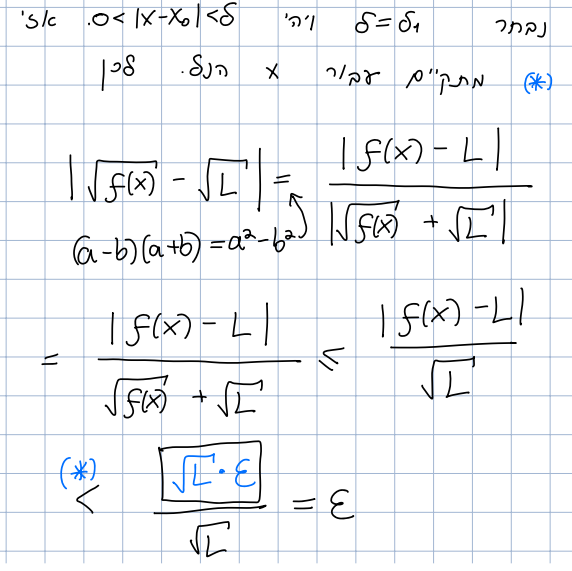 נבחר δ=δ₁ ויהי 0<|x-x₀|<δ. אזי
(*) מתקיים עבור x הנ"ל. לכן
|√f(x) - √L| = |f(x) - L| / |√f(x) + √L|
(a-b)(a+b)=a²-b²
= |f(x) - L| / (√f(x) + √L) ≤ |f(x) - L| / √L
(*)
< √L·ε / √L = ε